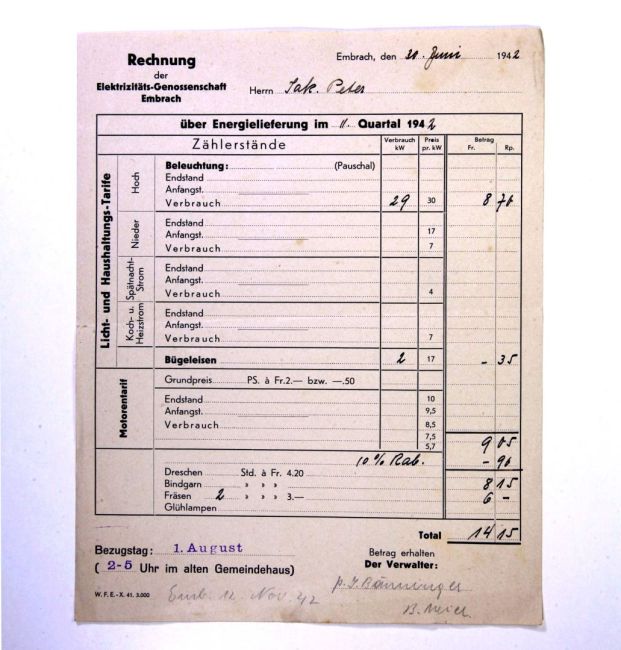 Rechnung
der
Elektrizitäts-Genossenschaft
Embrach
Embrach, den 30. Juni 1942
Herrn Jak. Peter
über Energielieferung im II. Quartal 1942
Zählerstände
Verbrauch kW
Preis pr. kW
Betrag
Fr. Rp.
Licht- und Haushaltungs-Tarife
Hoch
Beleuchtung: (Pauschal)
Endstand
Anfangst.
Verbrauch 29 30 8 70
Nieder
Endstand
Anfangst. 17
Verbrauch 7
Spätnacht-Strom
Endstand
Anfangst.
Verbrauch 4
Koch- u. Heizstrom
Endstand
Anfangst.
Verbrauch 7
Bügeleisen 2 17 – 35
Motorentarif
Grundpreis PS. à Fr. 2.— bzw. —.50
Endstand 10
Anfangst. 9,5
Verbrauch 8,5
7,5
5,7 9 05
10 % Rab. – 90
Dreschen Std. à Fr. 4.20
Bindgarn » » » 8 15
Fräsen 2 » » » 3.— 6 –
Glühlampen
Total 14 15
Bezugstag: 1. August
( 2-5 Uhr im alten Gemeindehaus)
Betrag erhalten
Der Verwalter:
W. F. E.- X. 41. 3.000
Emb. 12. Nov. 42